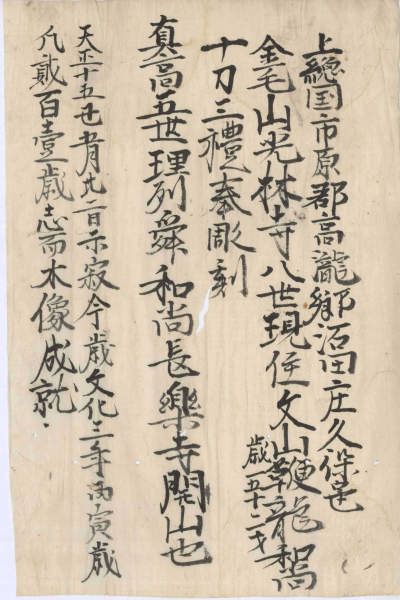 上総国市原郡高瀧郷沼田庄久保邑
金毛山光林寺八世現住文山鞭龍和尚
歳五十二才
十刀三禮奉彫刻
真高五世理列舜和尚長樂寺開山也
天正十五廿二日示寂今歳文化三年丙寅歳
凡貳百壹歳志而木像成就